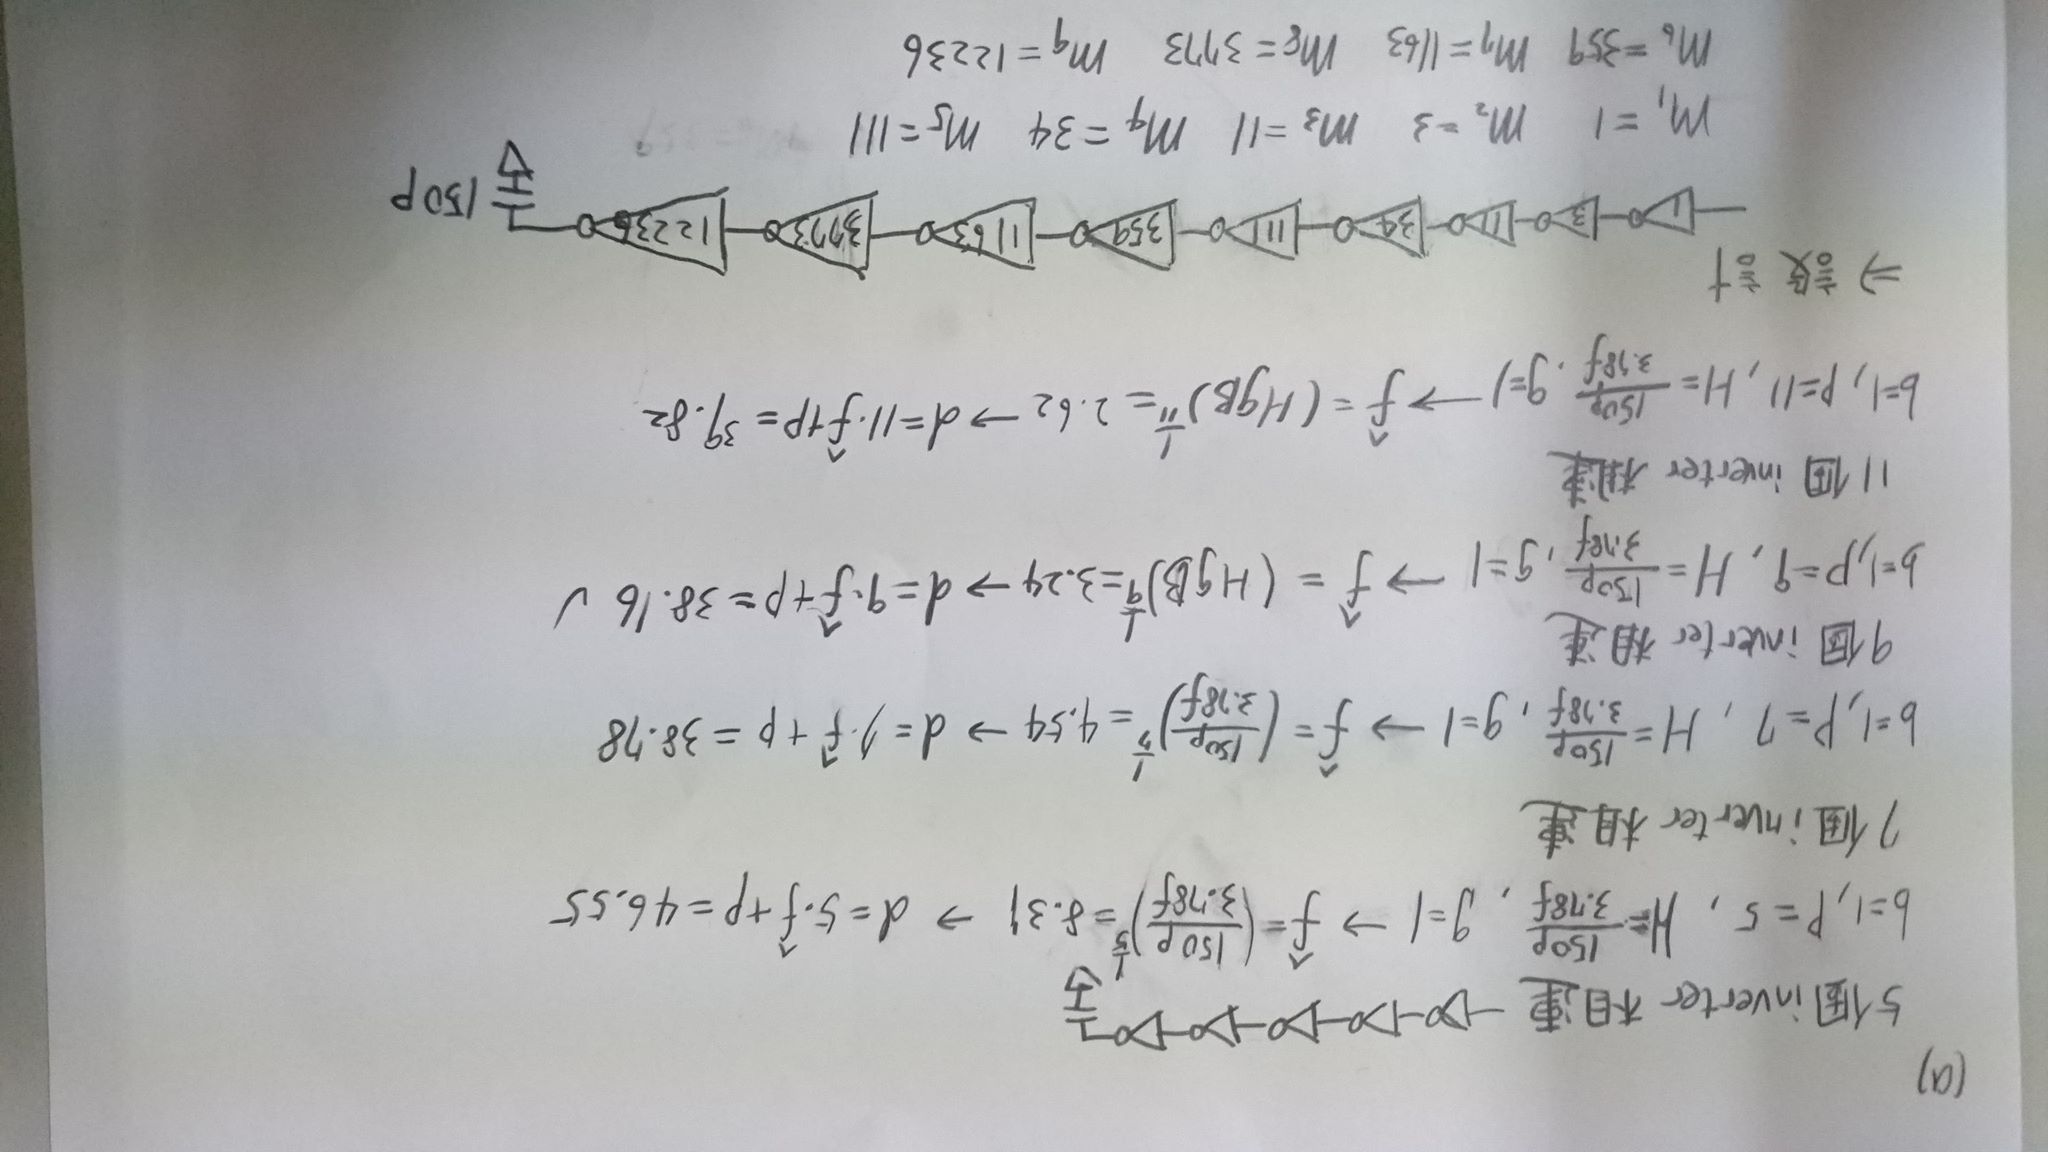 (a)
5個inverter 相連
b=1, P=5, H=150p/3.78f, g=1 → f̂=(150p/3.78f)^1/5=8.31 → d=5·f̂+p=46.55
7個inverter 相連
b=1, P=7, H=150p/3.78f, g=1 → f̂=(150p/3.78f)^1/7=4.54 → d=7·f̂+p=38.78
9個 inverter 相連
b=1, P=9, H=150p/3.78f, g=1 → f̂=(HgB)^1/9=3.24 → d=9·f̂+p=38.16 ✓
11個 inverter 相連
b=1, P=11, H=150p/3.78f, g=1 → f̂=(HgB)^1/11=2.62 → d=11·f̂+p=39.82
⇒ 設計
1 3 11 34 111 359 1163 3773 12236 150p
M₁=1 M₂=3 M₃=11 M₄=34 M₅=111
M₆=359 M₇=1163 M₈=3773 M₉=12236